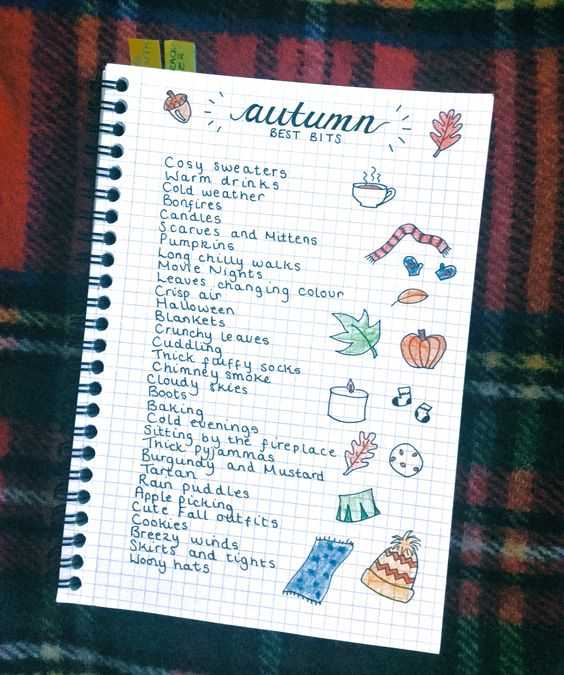 autumn
BEST BITS
Cosy sweaters
Warm drinks
Cold weather
Bonfires
Candles
Scarves and Mittens
Pumpkins
Long chilly walks
Movie Nights
Leaves changing colour
Crisp air
Halloween
Blankets
Crunchy leaves
Cuddling
Thick fluffy socks
Chimney smoke
Cloudy skies
Boots
Baking
Cold evenings
Sitting by the fireplace
Thick pyjammas
Burgundy and Mustard
Tartan
Rain puddles
Apple picking
Cute Fall outfits
Cookies
Breezy winds
Skirts and tights
Wooly hats